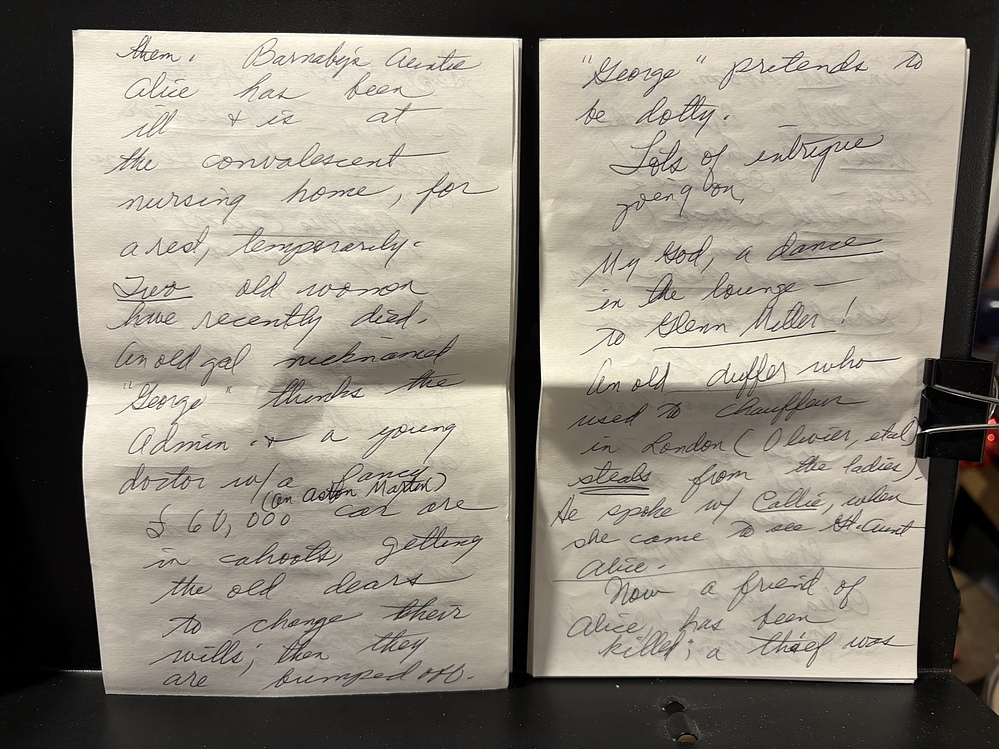 them. Barnaby's Auntie
Alice has been
ill & is at
the convalescent
nursing home, for
a rest, temporarily.
Two old women
have recently died.
An old gal nicknamed
"George" thinks the
Admin. & a young
doctor w/a fancy
(an Aston Martin)
£ 60,000 car are
in cahoots, getting
the old dears
to change their
wills; then they
are bumped off.
"George" pretends to
be dotty.
Lots of intrigue
going on,
My God, a dance
in the lounge —
to Glenn Miller!
An old duffer who
used to chauffeur
in London (Olivier, etal)
steals from the ladies.
He spoke w/ Callie, when
she came to see Gt. Aunt
Alice.
Now a friend of
Alice, has been
killed; a thief was